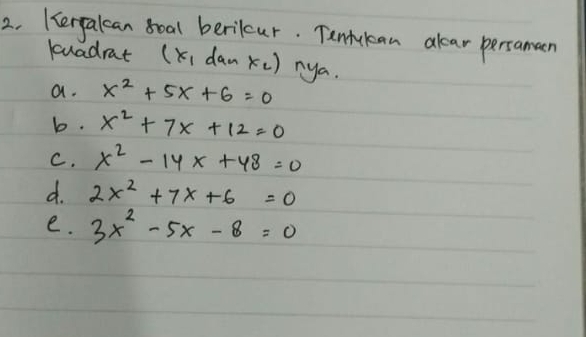 2. Kerjakan soal berikut. Tentukan akar persamaan
kuadrat (x₁ dan x₂) nya.
a. x² + 5x + 6 = 0
b. x² + 7x + 12 = 0
c. x² - 14x + 48 = 0
d. 2x² + 7x + 6 = 0
e. 3x² - 5x - 8 = 0